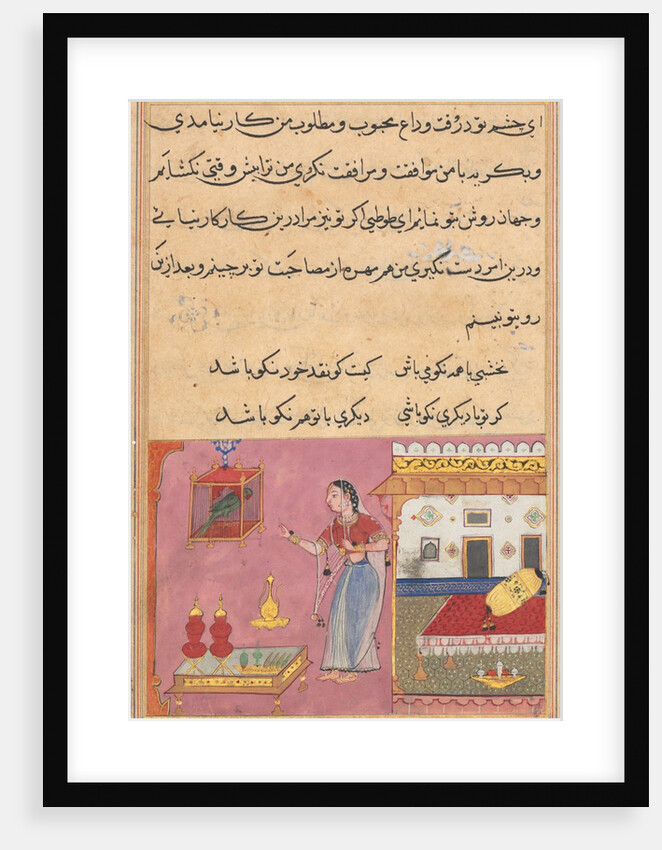 ای چشم تو در وقت وداع محبوب و مطلوب من کار نیامدی
و بکریه با من موافقت و مرافقت نکردی من ترا پیش وقتی نکشایم
و جهان روشن بتو ننمایم ای طوطی اکر تو نیز مرا درین کار کار نیایی
و درین امر دست نکیری من هم مهره از مصاحبت تو برچینم و بعد ازین
روی تو نبینم
نخشبی با همه نکو می باش کیست کو نقد خود نکو باشد
کر تو با دیکری نکو باشی دیکری با تو هم نکو باشد